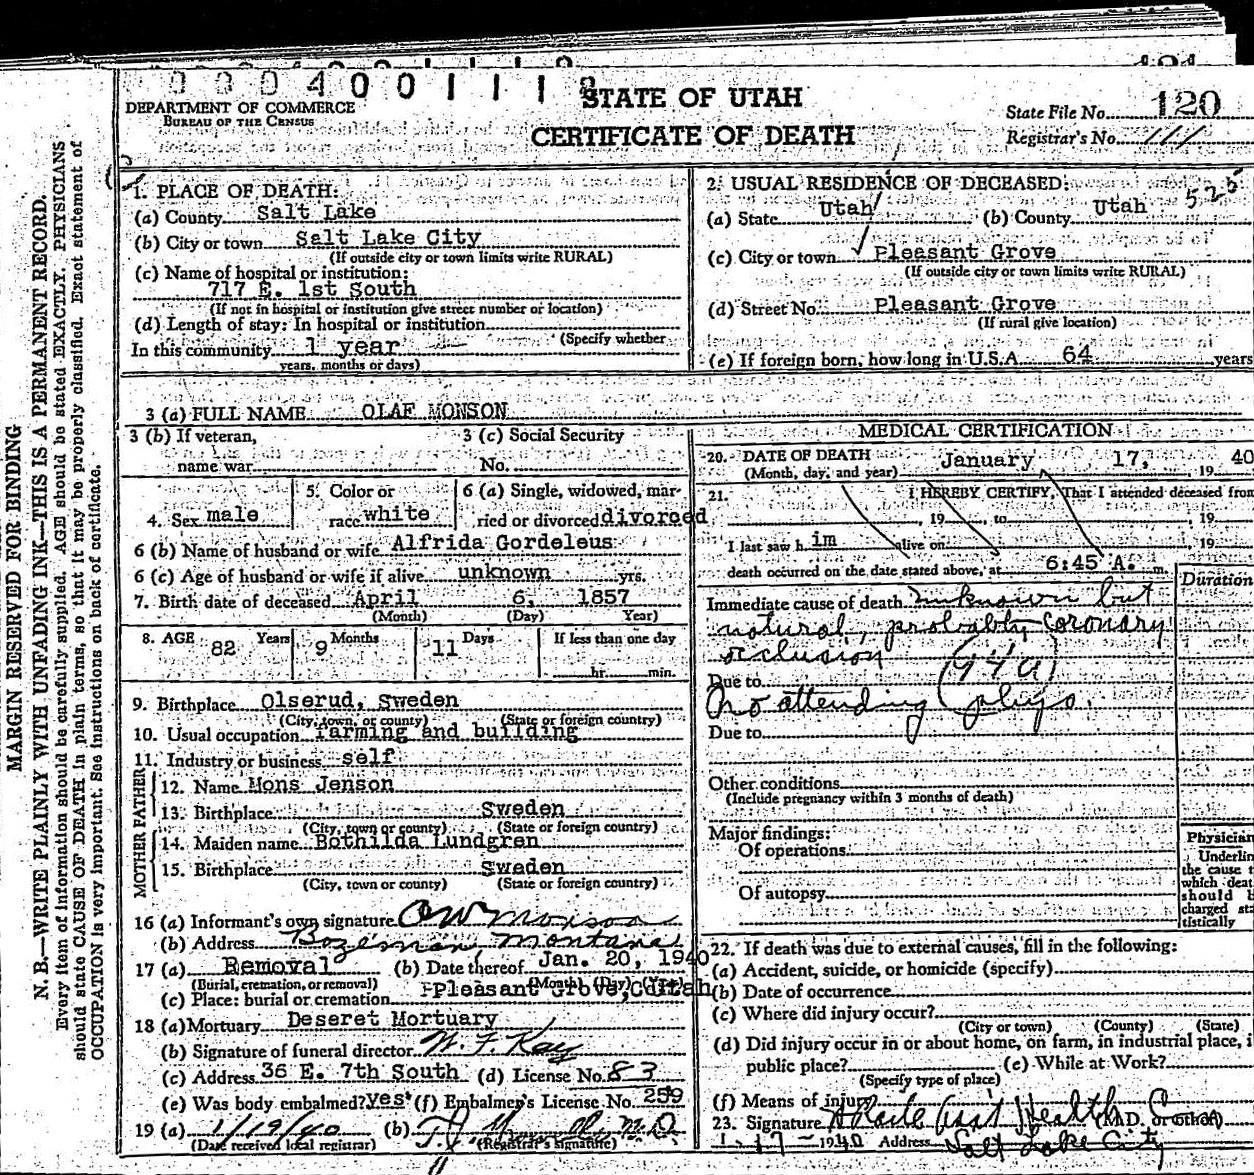 0004001112
DEPARTMENT OF COMMERCE
BUREAU OF THE CENSUS
STATE OF UTAH
CERTIFICATE OF DEATH
State File No. 120
Registrar's No. 111
MARGIN RESERVED FOR BINDING
N. B.—WRITE PLAINLY WITH UNFADING INK—THIS IS A PERMANENT RECORD.
Every item of information should be carefully supplied. AGE should be stated EXACTLY. PHYSICIANS
should state CAUSE OF DEATH in plain terms, so that it may be properly classified. Exact statement of
OCCUPATION is very important. See instructions on back of certificate.
1. PLACE OF DEATH:
(a) County Salt Lake
(b) City or town Salt Lake City
(If outside city or town limits write RURAL)
(c) Name of hospital or institution:
717 E. 1st South
(If not in hospital or institution give street number or location)
(d) Length of stay: In hospital or institution
(Specify whether
In this community 1 year
years, months or days)
2. USUAL RESIDENCE OF DECEASED: 525
(a) State Utah (b) County Utah
(c) City or town Pleasant Grove
(If outside city or town limits write RURAL)
(d) Street No. Pleasant Grove
(If rural give location)
(e) If foreign born, how long in U.S.A. 64 years
3 (a) FULL NAME OLAF MONSON
3 (b) If veteran,
name war
3 (c) Social Security
No.
4. Sex male
5. Color or
race white
6 (a) Single, widowed, mar-
ried or divorced divorced
6 (b) Name of husband or wife Alfrida Gordeleus
6 (c) Age of husband or wife if alive unknown yrs.
7. Birth date of deceased April 6, 1857
(Month) (Day) Year)
8. AGE 82 Years 9 Months 11 Days If less than one day
hr. min.
9. Birthplace Olserud, Sweden
(City, town, or county) (State or foreign country)
10. Usual occupation farming and building
11. Industry or business self
FATHER
12. Name Mons Jenson
13. Birthplace Sweden
(City, town or county) (State or foreign country)
MOTHER
14. Maiden name Bothilda Lundgren
15. Birthplace Sweden
(City, town or county) (State or foreign country)
16 (a) Informant's own signature O W Monson
(b) Address Bozeman Montana
17 (a) Removal (b) Date thereof Jan. 20, 1940
(Burial, cremation, or removal) (Month) (Day) (Year)
(c) Place: burial or cremation Pleasant Grove, Utah
18 (a) Mortuary Deseret Mortuary
(b) Signature of funeral director W. F. Kay
(c) Address 36 E. 7th South (d) License No. 83
(e) Was body embalmed? Yes (f) Embalmer's License No. 259
19 (a) 1/19/40 (b) M.D.
(Date received local registrar) (Registrar's signature)
MEDICAL CERTIFICATION
20. DATE OF DEATH January 17, 1940
(Month, day, and year)
21. I HEREBY CERTIFY, That I attended deceased from
, 19 , to , 19
I last saw him alive on , 19
death occurred on the date stated above, at 6:45 A. m.
Duration
Immediate cause of death unknown but
natural, probably coronary
occlusion (94a)
Due to
No attending phys.
Due to
Other conditions
(Include pregnancy within 3 months of death)
Major findings:
Of operations
Of autopsy
Physician
Underlin
the cause t
which deat
should b
charged sta
tistically
22. If death was due to external causes, fill in the following:
(a) Accident, suicide, or homicide (specify)
(b) Date of occurrence
(c) Where did injury occur?
(City or town) (County) (State)
(d) Did injury occur in or about home, on farm, in industrial place, i
public place? (e) While at Work?
(Specify type of place)
(f) Means of injury
23. Signature Asst Health (M.D. or other)
1-17-1940 Address Salt Lake City